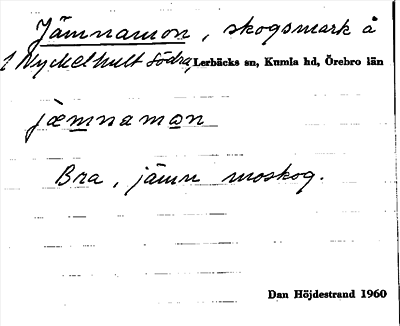 Jämnamon, skogsmark å
1 Nyckelhult södra, Lerbäcks sn, Kumla hd, Örebro län
jæmnamon
Bra, jämn moskog.
Dan Höjdestrand 1960